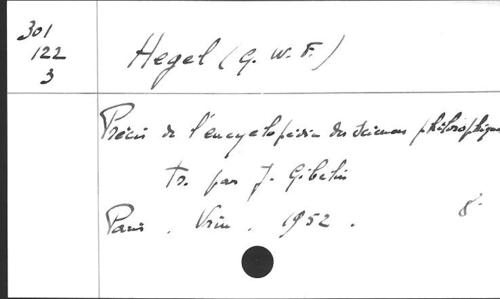 301
122
3
Hegel (G. W. F.)
Précis de l'encyclopédie des sciences philosophiques
Tr. par J. Gibelin
Paris. Vrin. 1952. 8°